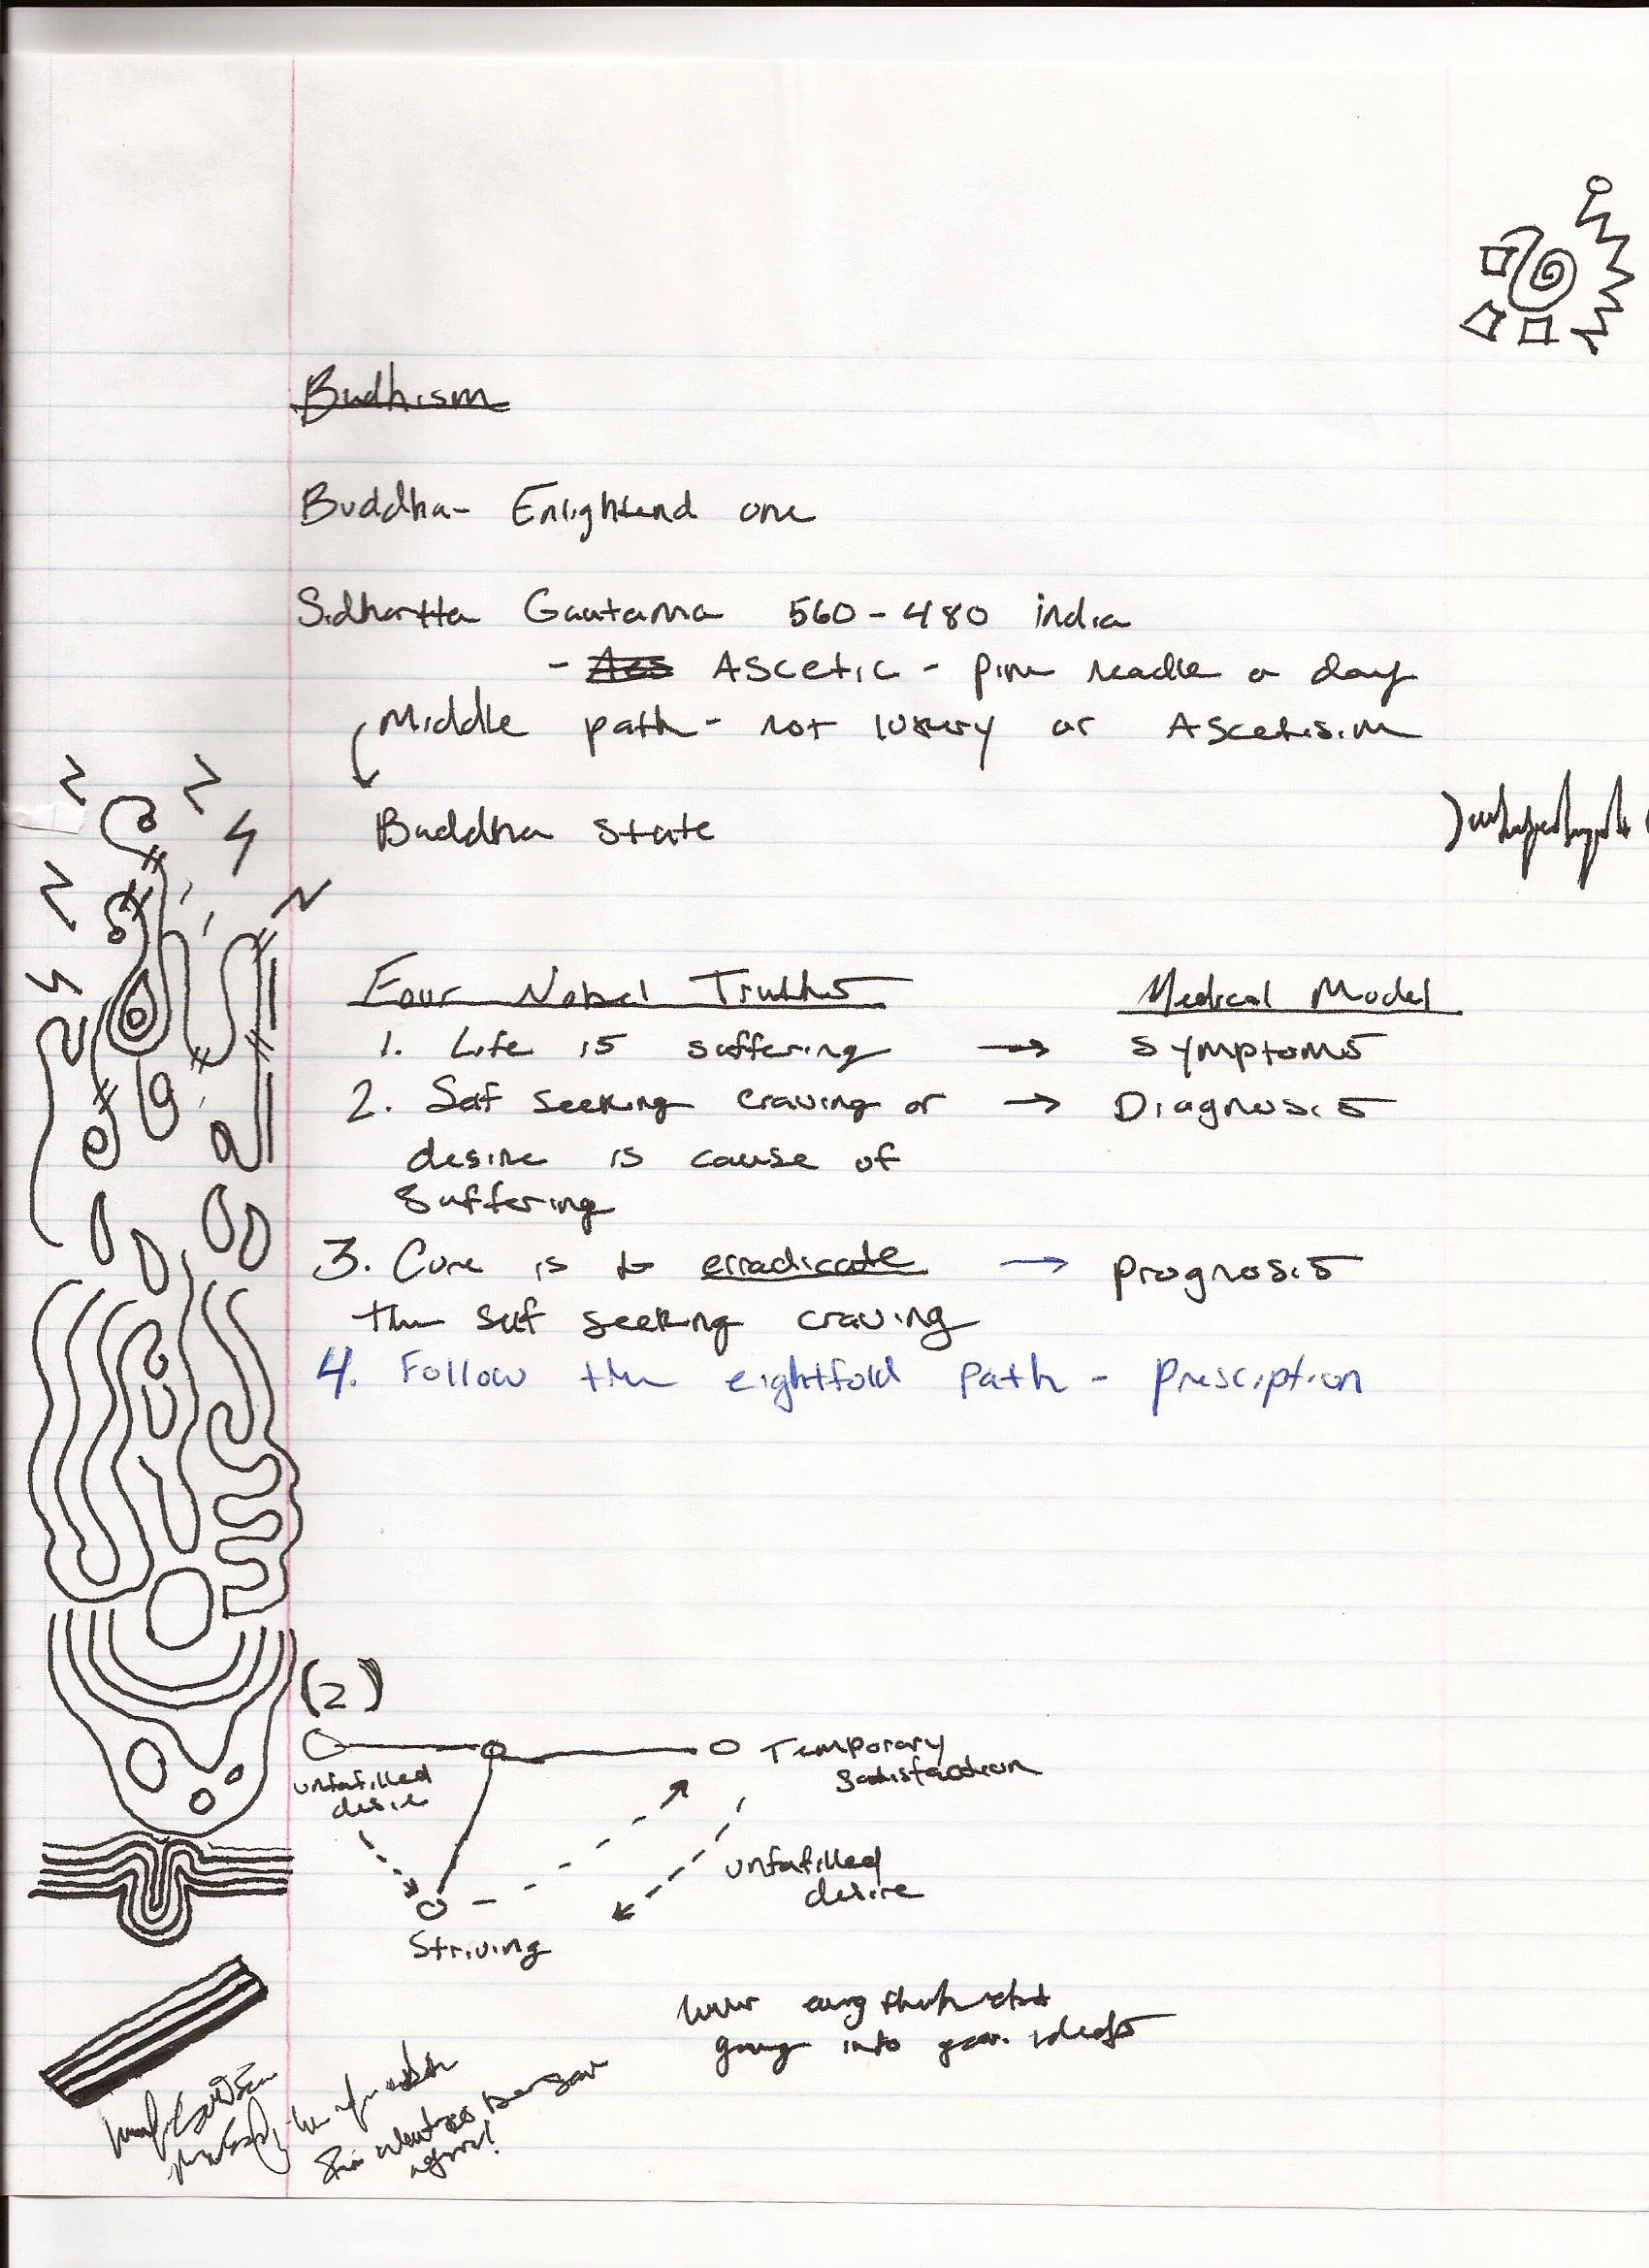 Budhism
Buddha- Enlightend one
Sidhartta Gautama 560-480 india
- Aes Ascetic - pine neadle a day
Middle path - not luxury or Ascetisim
Buddha state
Four Nobel Truths Medical Model
1. Life is suffering → symptoms
2. Self seeking craving or → Diagnosis
desire is cause of
suffering
3. Cure is to erradiccate → prognosis
the self seeking craving
4. Follow the eightfold path - prescription
(2)
Temporary
satisfaction
unfufilled
desire
unfufilled
desire
Striving
going into